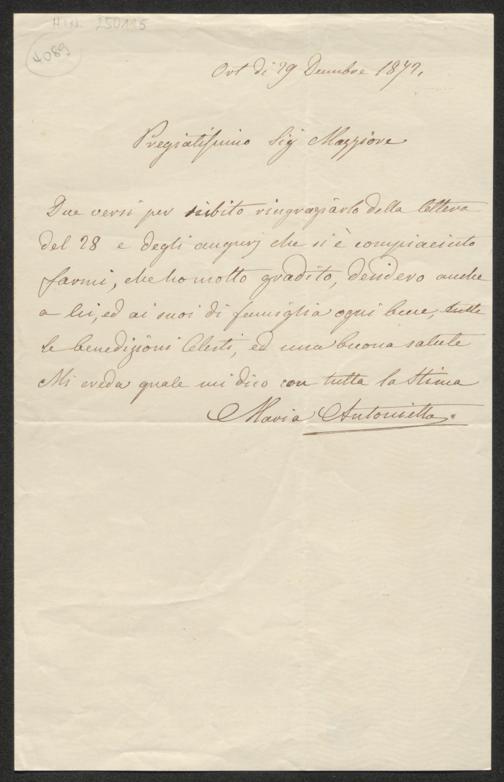 HIN. 250115
4089
Ort di 29 Decembre 1872.
Pregiatissimo Sig Maggiore
Due versi per subito ringraziarlo della lettera
del 28 e degli augurj che si è compiaciuto
farmi, che ho molto gradito, desidero anche
a lei, ed ai suoi di famiglia ogni bene, tutte
le benedizioni Celesti, ed una buona salute
Mi creda quale mi dico con tutta la stima
Maria Antonietta